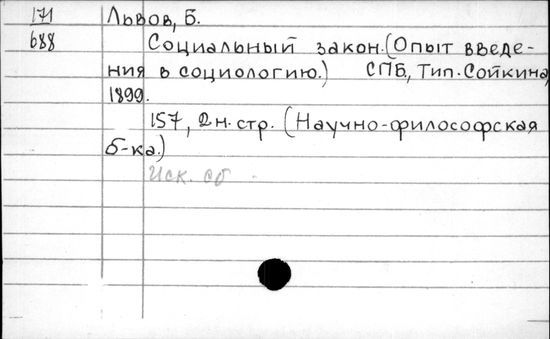 171 Львов, Б.
688 Социальный закон. (Опыт введе-
ния в социологию.) СПБ, Тип. Сойкина,
1899.
157, 2 н. стр. (Научно-философская
б-ка.)
Иск. сб